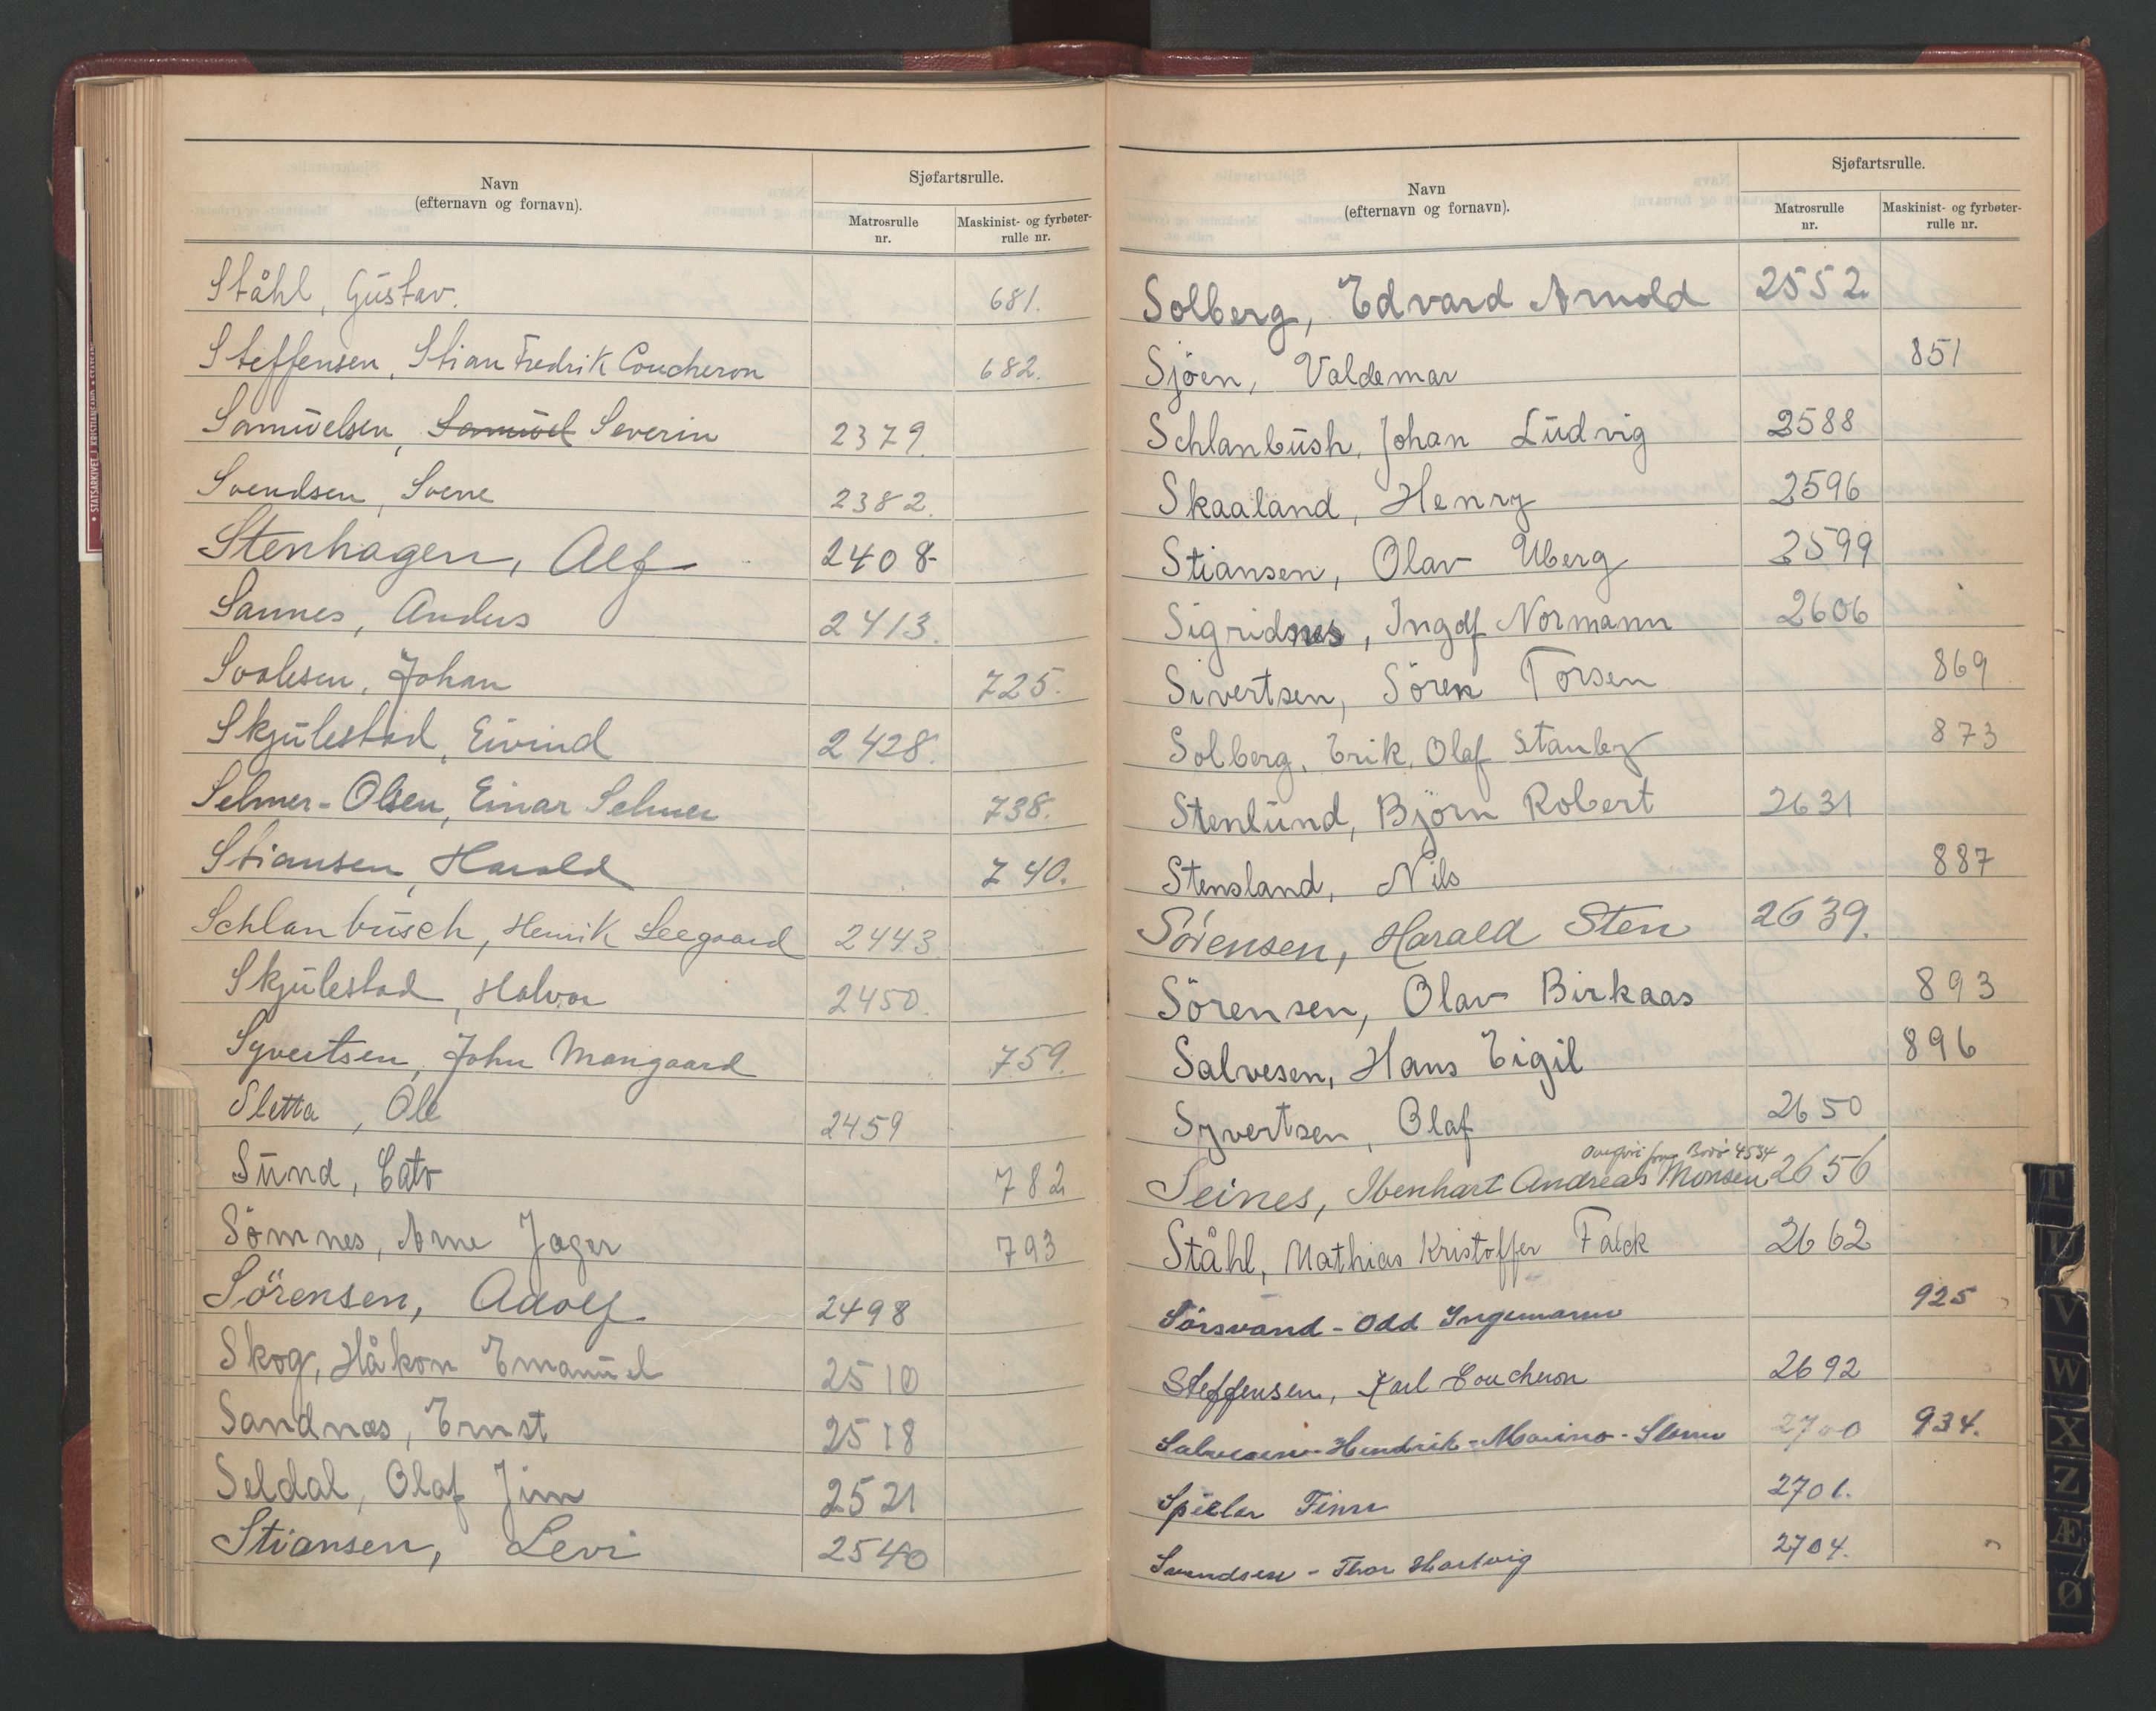 Navn
(efternavn og fornavn).
Sjøfartsrulle.
Matrosrulle
nr.
Maskinist- og fyrbøter-
rulle nr.
Ståhl, Gustav. 681.
Steffensen, Stian Fredrik Coucheron 682.
Samuelsen, Samuel Severin 2379.
Svendsen, Sverre 2382.
Stenhagen, Alf 2408-
Sannes, Anders 2413.
Svalesen, Johan 725.
Skjulestad, Eivind 2428.
Selmer-Olsen, Einar Selmer 738.
Stiansen, Harald 740.
Schlanbusch, Henrik Leegaard 2443
Skjulestad, Halvor 2450.
Syvertsen, John Mangaard 759.
Sletta, Ole 2459
Sund, Cato 782
Sömnes, Arne Jæger 793
Sörensen, Adolf 2498
Skog, Håkon Emanuel 2510
Sandnæs, Ernst 2518
Seldal, Olaf Jim 2521
Stiansen, Levi 2540
Navn
(efternavn og fornavn).
Sjøfartsrulle.
Matrosrulle
nr.
Maskinist- og fyrbøter-
rulle nr.
Solberg, Edvard Arnold 2552.
Sjöen, Valdemar 851
Schlanbush, Johan Ludvig 2588
Skaaland, Henry 2596
Stiansen, Olav Uberg 2599
Sigridnes, Ingolf Normann 2606
Sivertsen, Sören Torsen 869
Solberg, Erik, Olaf Stanley 873
Stenlund, Björn Robert 2631
Stensland, Nils 887
Sörensen, Harald Sten 2639.
Sörensen, Olav Birkaas 893
Salvesen, Hans Eigil 896
Syvertsen, Olaf 2650
4534
Seines, Ibenhart Andreas Monsen 2656
Ståhl, Mathias Kristoffer Falck 2662
Sörsvand - Odd Ingemann 925
Steffensen, Karl Coucheron 2692
Salvesen - Hendrik - Marino - 2700 934.
Finn 2701.
Svendsen - Thor Hartvig 2704.
STATSARKIVET I KRISTIANSAND
T
U
V
W
X
Z
Æ
Ø